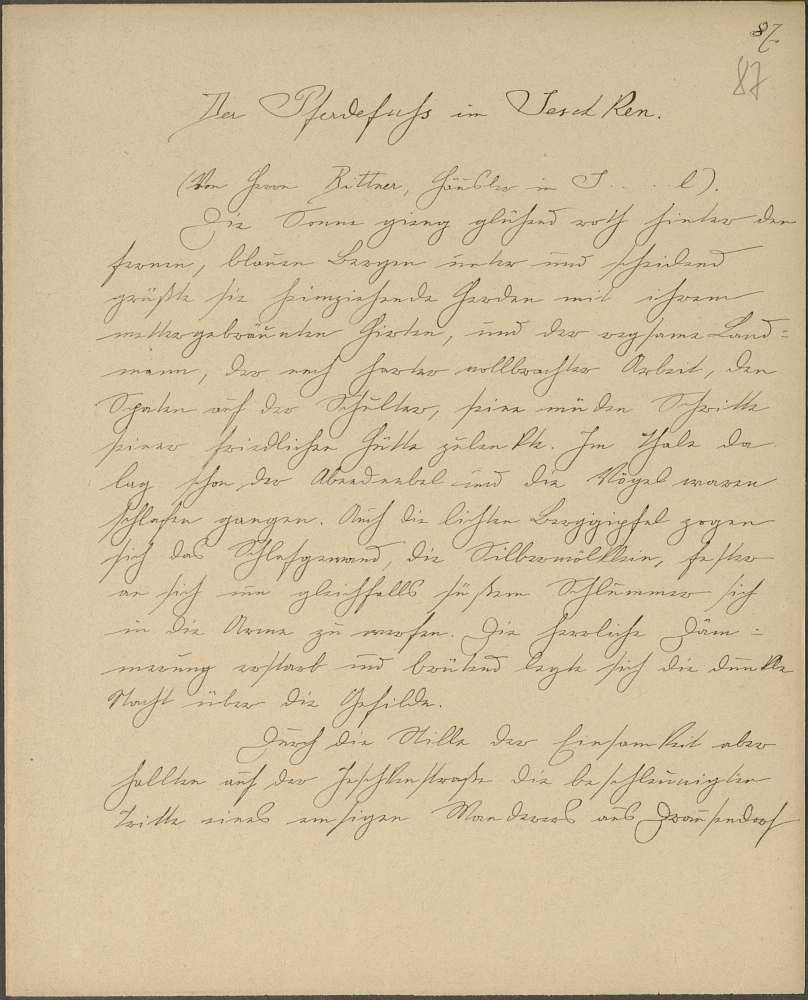 87
87
Der Pferdefuss im Jeschken.
(Von Herrn Bittner, Häusler in J . . . . l).
Die Sonne gieng glühend roth hinter den
fernen, blauen Bergen unter und scheidend
grüßte sie heimziehende Herden mit ihrem
wettergebräunten Hirten, und der regsame Land=
mann, der nach harter vollbrachter Arbeit, den
Spaten auf der Schulter, seine müden Schritte
seiner friedlichen Hütte zulenkte. Im Thale da
lag schon der Abendnebel und die Vögel waren
schlafen gangen. Auch die lichten Berggipfel zogen
sich das Schlafgewand, die Silberwölklein, fester
an sich um gleichfalls süßem Schlummer sich
in die Arme zu werfen. Die herrliche Däm=
merung erstarb und brütend legte sich die dunkle
Nacht über die Gefilde.
Durch die Stille der Einsamkeit aber
hallten auf der Jeschkenstraße die beschleunigten
Tritte eines emsigen Wanderers aus Drausendorf